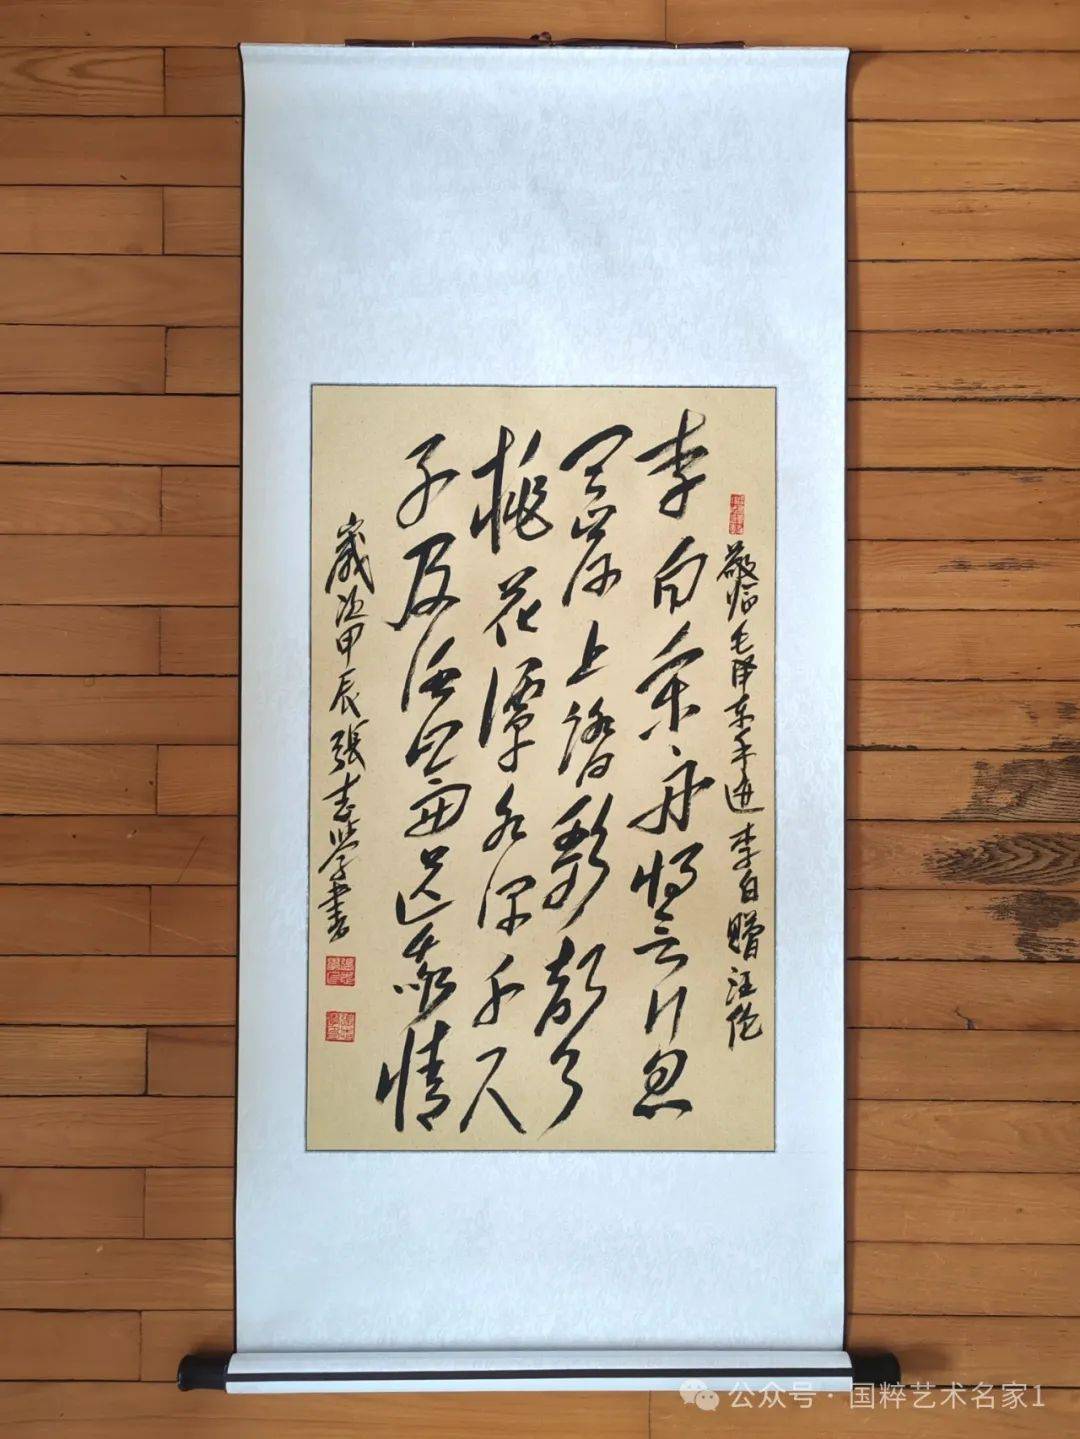 敬临毛泽东手迹李白赠汪伦
李白乘舟将欲行忽
闻岸上踏歌声
桃花潭水深千尺
不及汪伦送我情
歲次甲辰張志学書
公众号·国粹艺术名家1